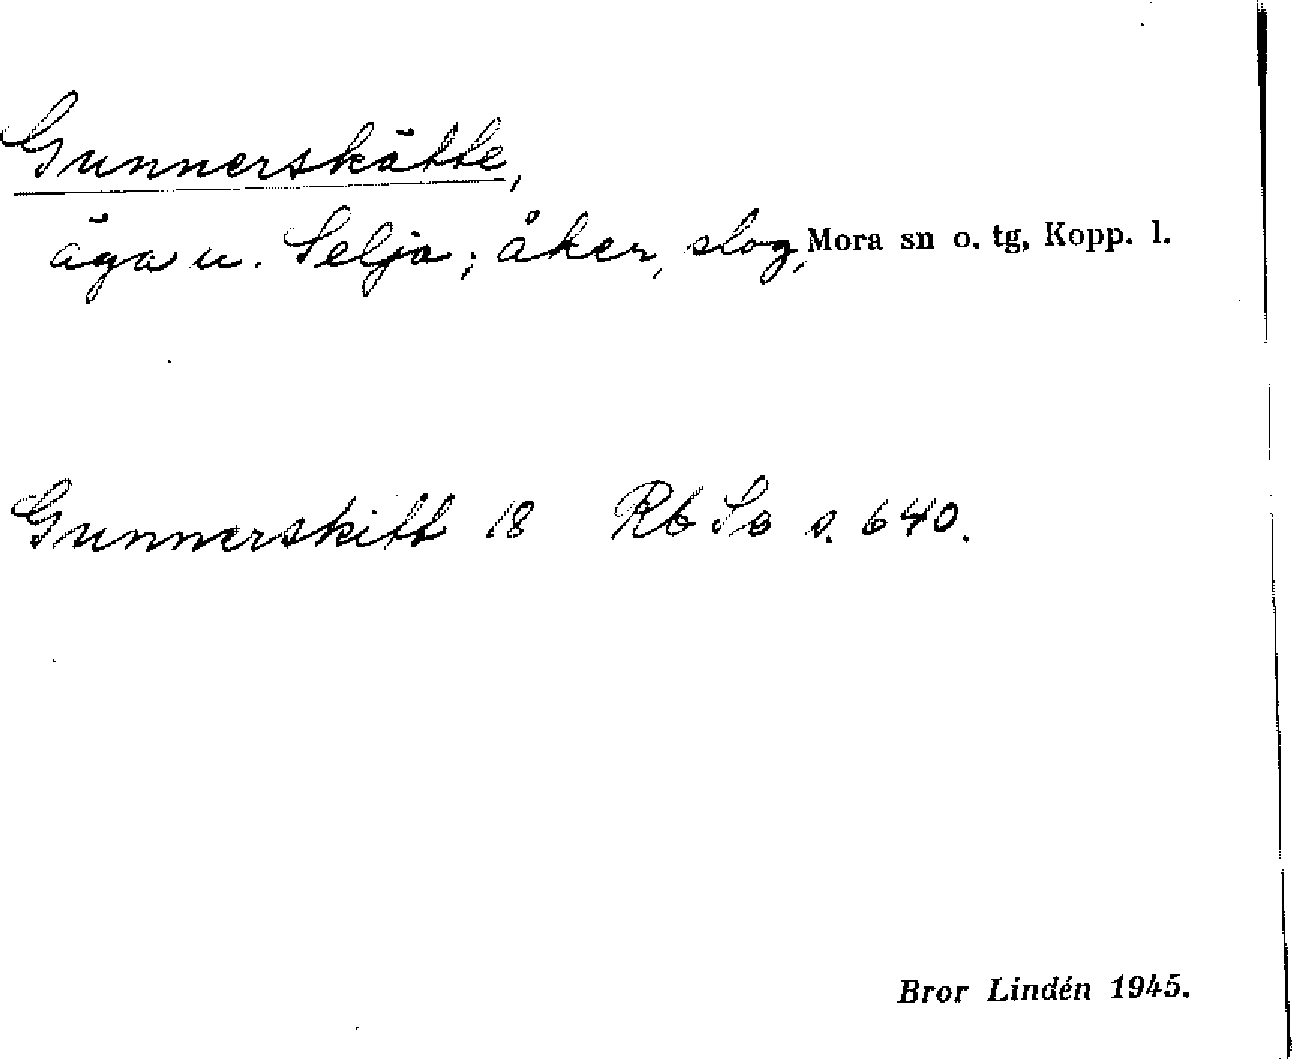 Gunnerskätte,
äga u. Selja; åker, slog, Mora sn o. tg, Kopp. l.
Gunnerskitt 18 Rb So s. 640.
Bror Lindén 1945.